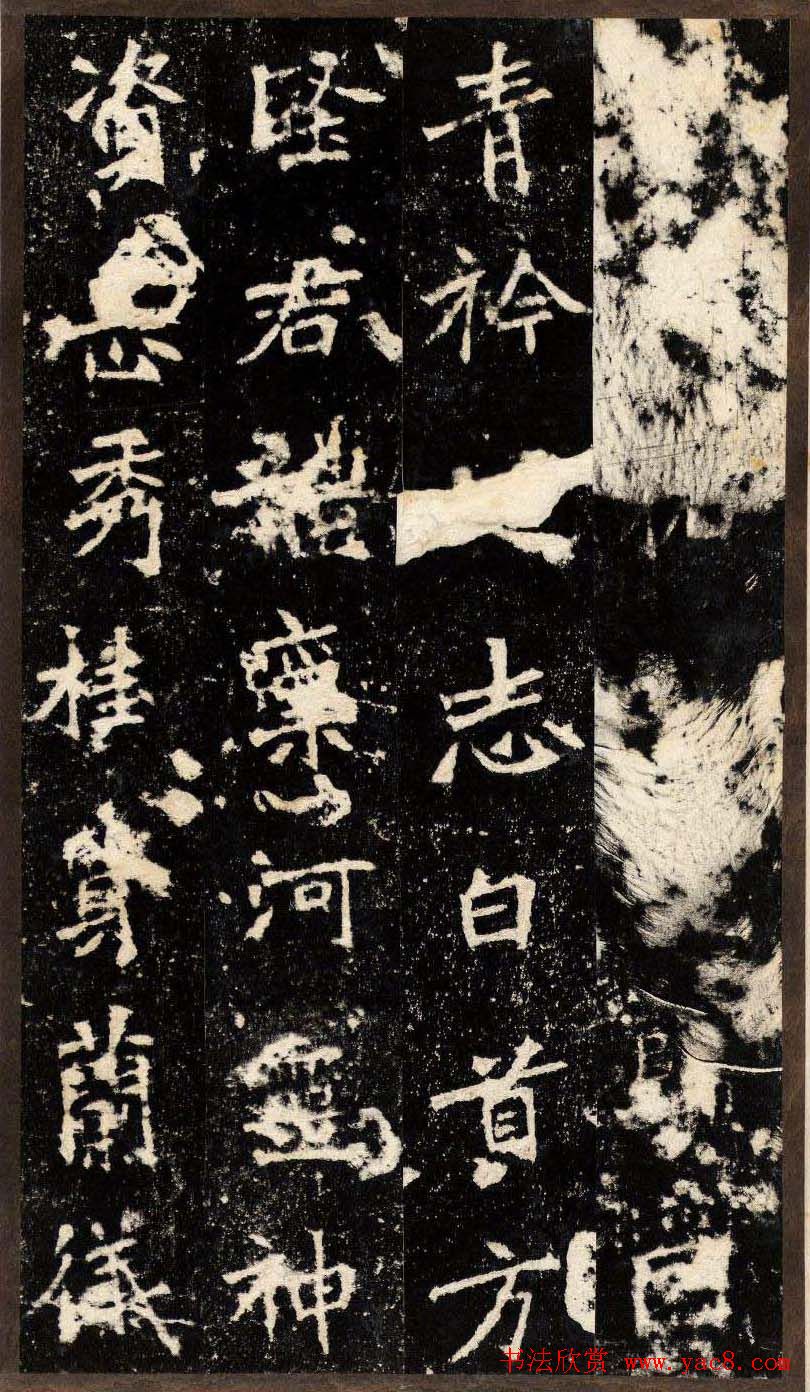 青衿之志白首方
堅君體禀河靈神
資岳秀桂質蘭儀
书法欣赏 www.yac8.com